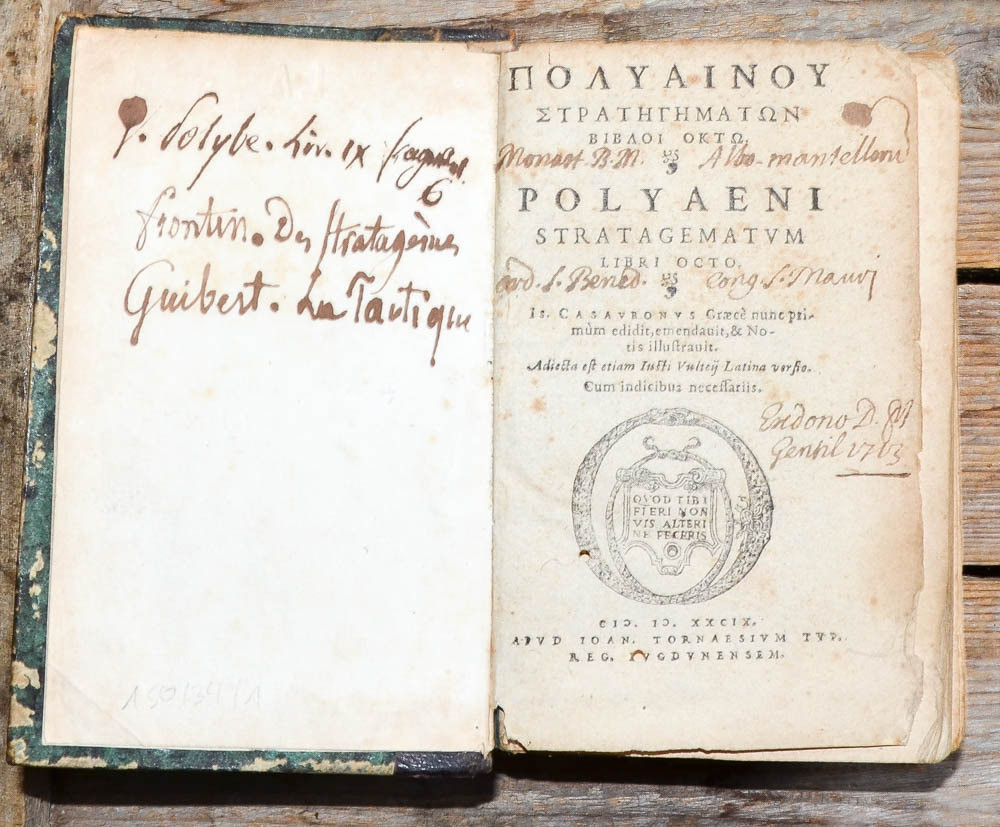 v. Polybe. Liv. IX fragment.
6
frontin. Des stratagèmes
Guibert. La Tactique
150/34/1
ΠΟΛΥΑΙΝΟΥ
ΣΤΡΑΤΗΓΗΜΑΤΩΝ
ΒΙΒΛΟΙ ΟΚΤΩ.
Monast. B. M. Albo-mantellorū
POLYAENI
STRATAGEMATVM
LIBRI OCTO.
ord. S. Bened. Cong. S. Mauri
IS. CASAVBONVS Græcè nunc pri-
mùm edidit, emendauit, & No-
tis illuſtrauit.
Adiecta eſt etiam Iuſti Vulteij Latina verſio.
Cum indicibus neceſſariis.
Ex dono D.
Gentil 1713
QVOD TIBI
FIERI NON
VIS ALTERI
NE FECERIS
CIↃ. IↃ. XXCIX.
APVD IOAN. TORNAESIVM TYP.
REG. LVGDVNENSEM.